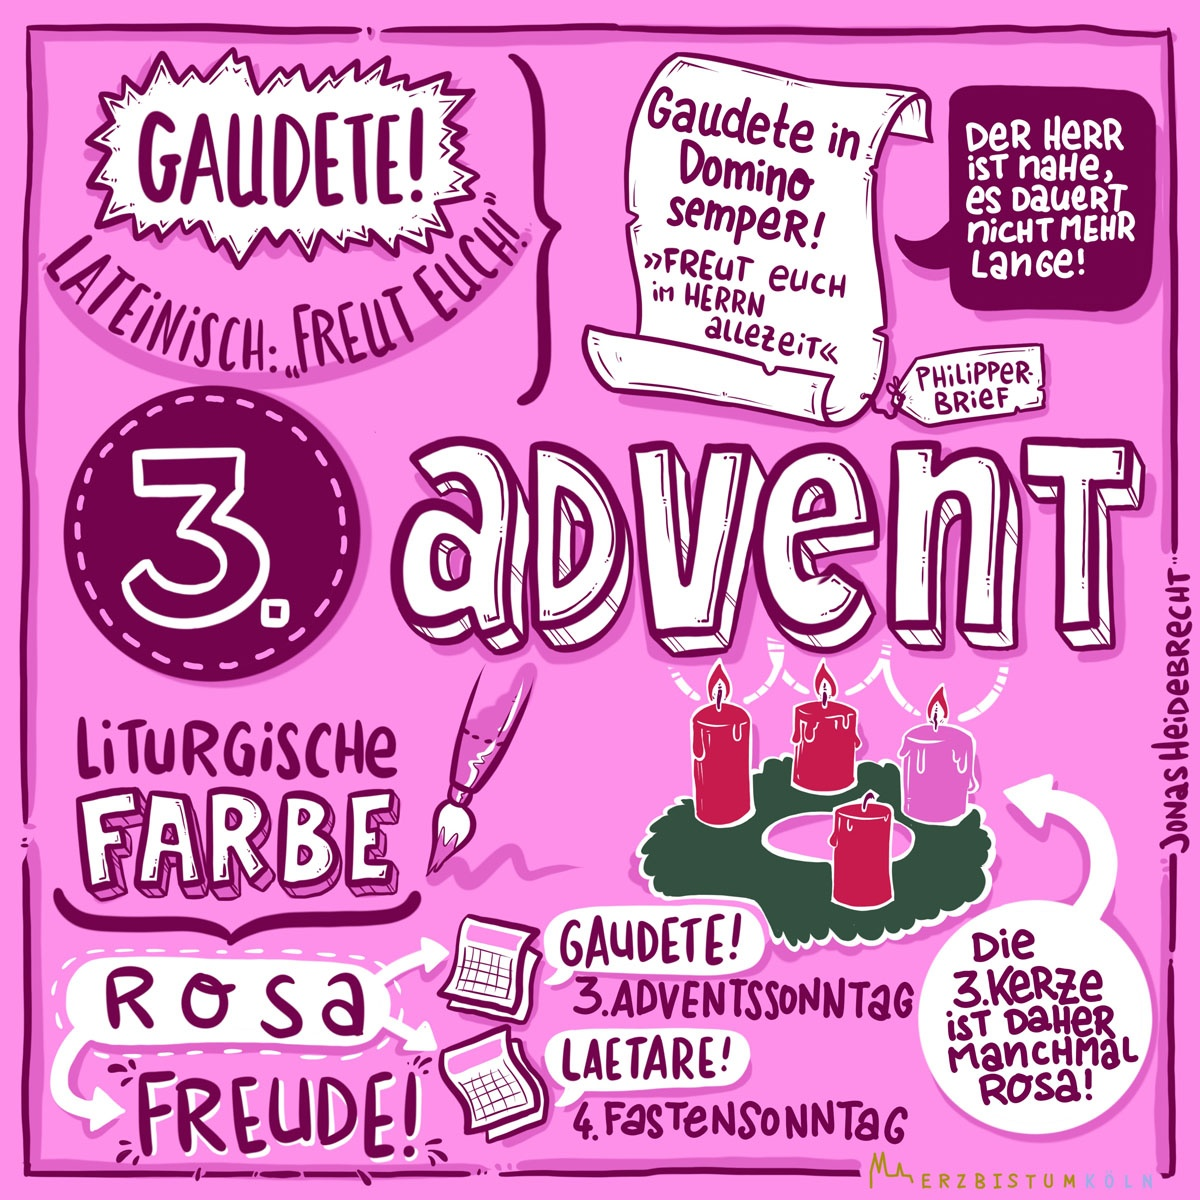 GAUDETE!
LATEINISCH: „FREUT EUCH!"
Gaudete in
Domino
semper!
»FREUT EUCH
im HERRN
allezeit«
PHILIPPER-
BRIEF
DER HERR
IST NAHE,
ES DAUERT
NICHT MEHR
LANGE!
3. ADVENT
LITURGISCHE
FARBE
ROSA
"FREUDE!"
GAUDETE!
3. ADVENTSSONNTAG
LAETARE!
4. FASTENSONNTAG
Die
3. KERZE
IST DAHER
MANCHMAL
ROSA!
"JONAS HEIDEBRECHT"
ERZBISTUMKÖLN